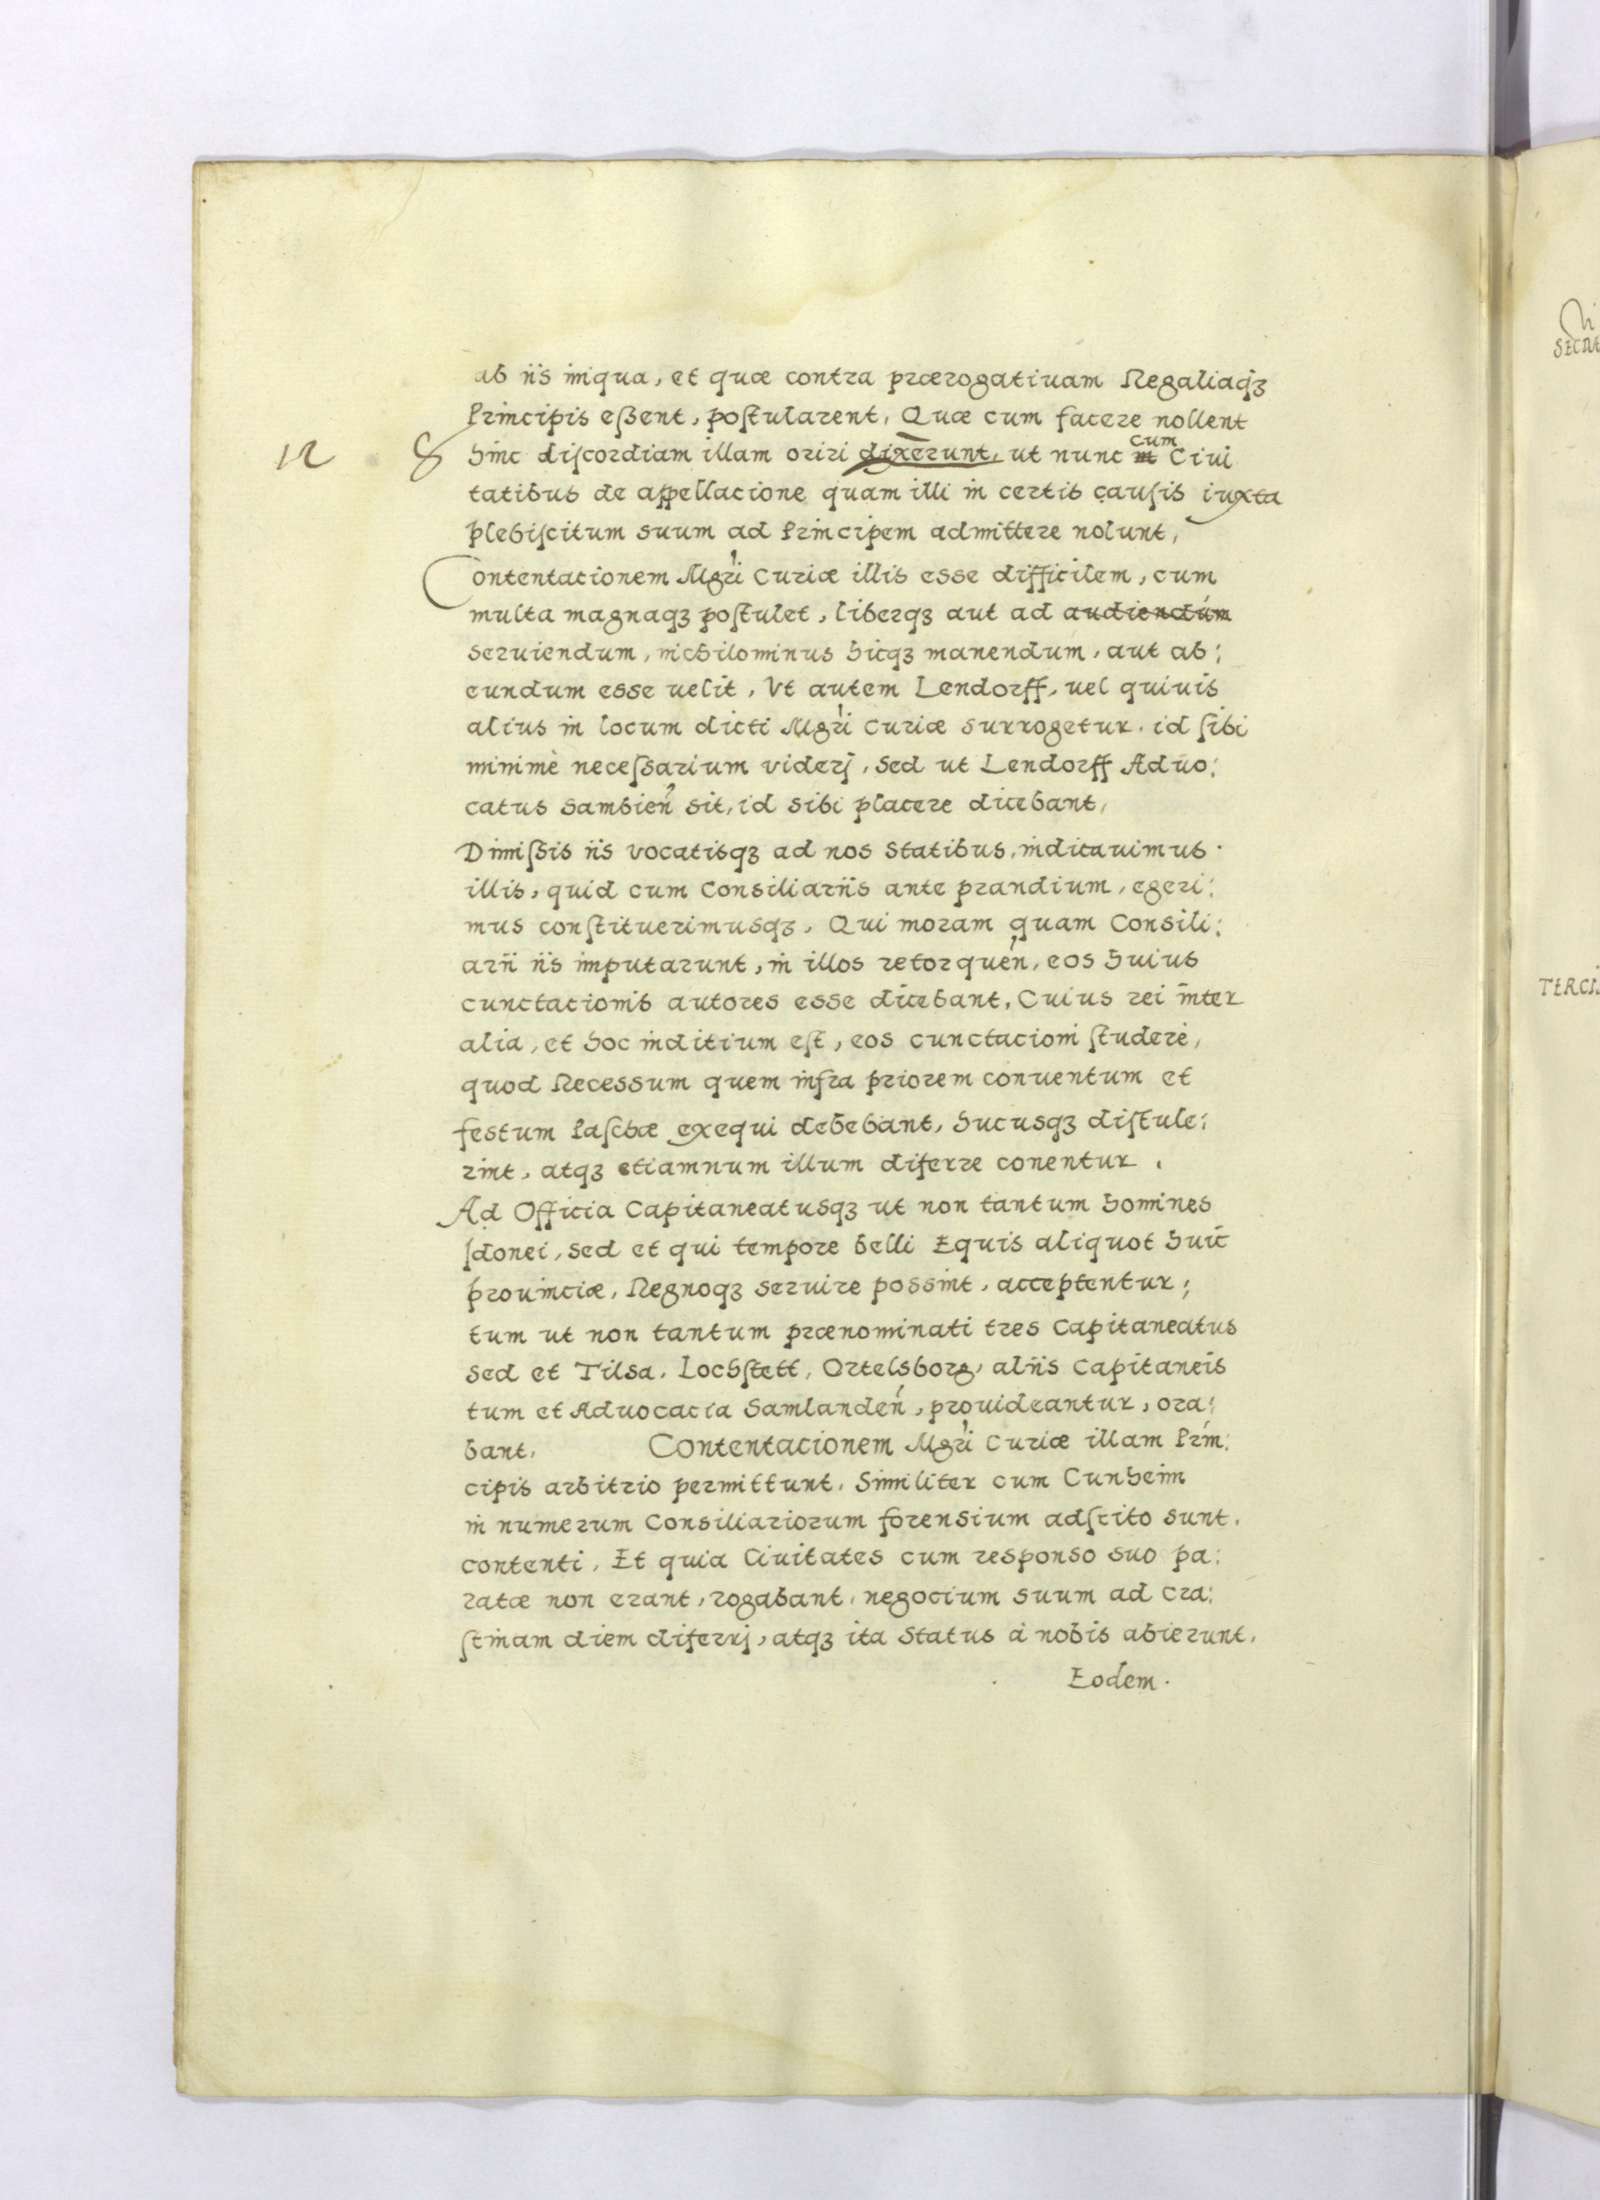 ab iis iniqua, et quæ contra prærogatiuam Regaliaqꝫ
Principis eßent, poſtularent, Quæ cum facere nollent
hinc diſcordiam illam oriri dixerunt, ut nunc in cum Ciui
tatibus de appellacione quam illi in certis cauſis iuxta
plebiſcitum suum ad Principem admittere nolunt,
Contentacionem Mgri Curiæ illis esse difficilem, cum
multa magnaqꝫ poſtulet, liberqꝫ aut ad audiendum
seruiendum, nichilominus hicqꝫ manendum, aut ab:
eundum esse uelit, Vt autem Lendorff, uel quiuis
alius in locum dicti Mgri Curiæ surrogetur, id ſibi
minimè neceſsarium viderj, sed ut Lendorff Aduo:
catus Sambien̄ sit, id sibi placere dicebant,
Dimiſsis iis vocatisqꝫ ad nos Statibus, indicauimus
illis, quid cum Consiliariis ante prandium, egeri:
mus conſtituerimusqꝫ, Qui moram quam Consili:
arii iis imputarunt, in illos retorquen̄, eos huius
cunctacionis autores esse dicebant, Cuius rei inter
alia, et hoc inditium eſt, eos cunctacioni ſtudere,
quod Recessum quem infra priorem conuentum et
festum Paſchæ exequi debebant, hucusqꝫ diſtule:
rint, atqꝫ etiamnum illum diferre conentur.
Ad Officia Capitaneatusqꝫ ut non tantum homines
Idonei, sed et qui tempore belli Equis aliquot huic
prouinciæ, Regnoqꝫ seruire possint, acceptentur;
tum ut non tantum prænominati tres Capitaneatus
sed et Tilsa, Lochſtett, Ortelsborg, aliis Capitaneis
tum et Aduocacia Samlanden̄, prouideantur, ora:
bant, Contentacionem Mgri Curiæ illam Prin:
cipis arbitrio permittunt, Similiter cum Cunheim
in numerum Consiliariorum forensium adſcito sunt
contenti, Et quia Ciuitates cum responso suo pa:
ratæ non erant, rogabant, negocium suum ad cra:
ſtinam diem diferrj, atqꝫ ita Status à nobis abierunt,
Eodem.